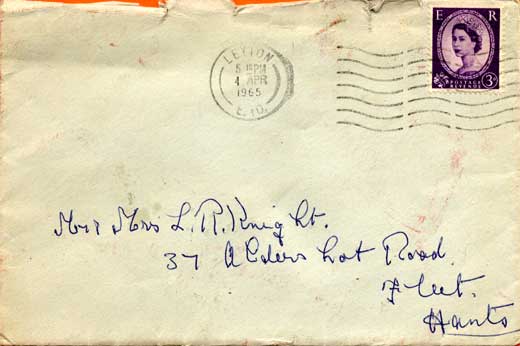 E R
POSTAGE
REVENUE
3D
LEYTON
5 15PM
4 APR
1965
E.10.
Mr & Mrs L. R. Knight.
37 Aldershot Road.
Fleet.
Hants